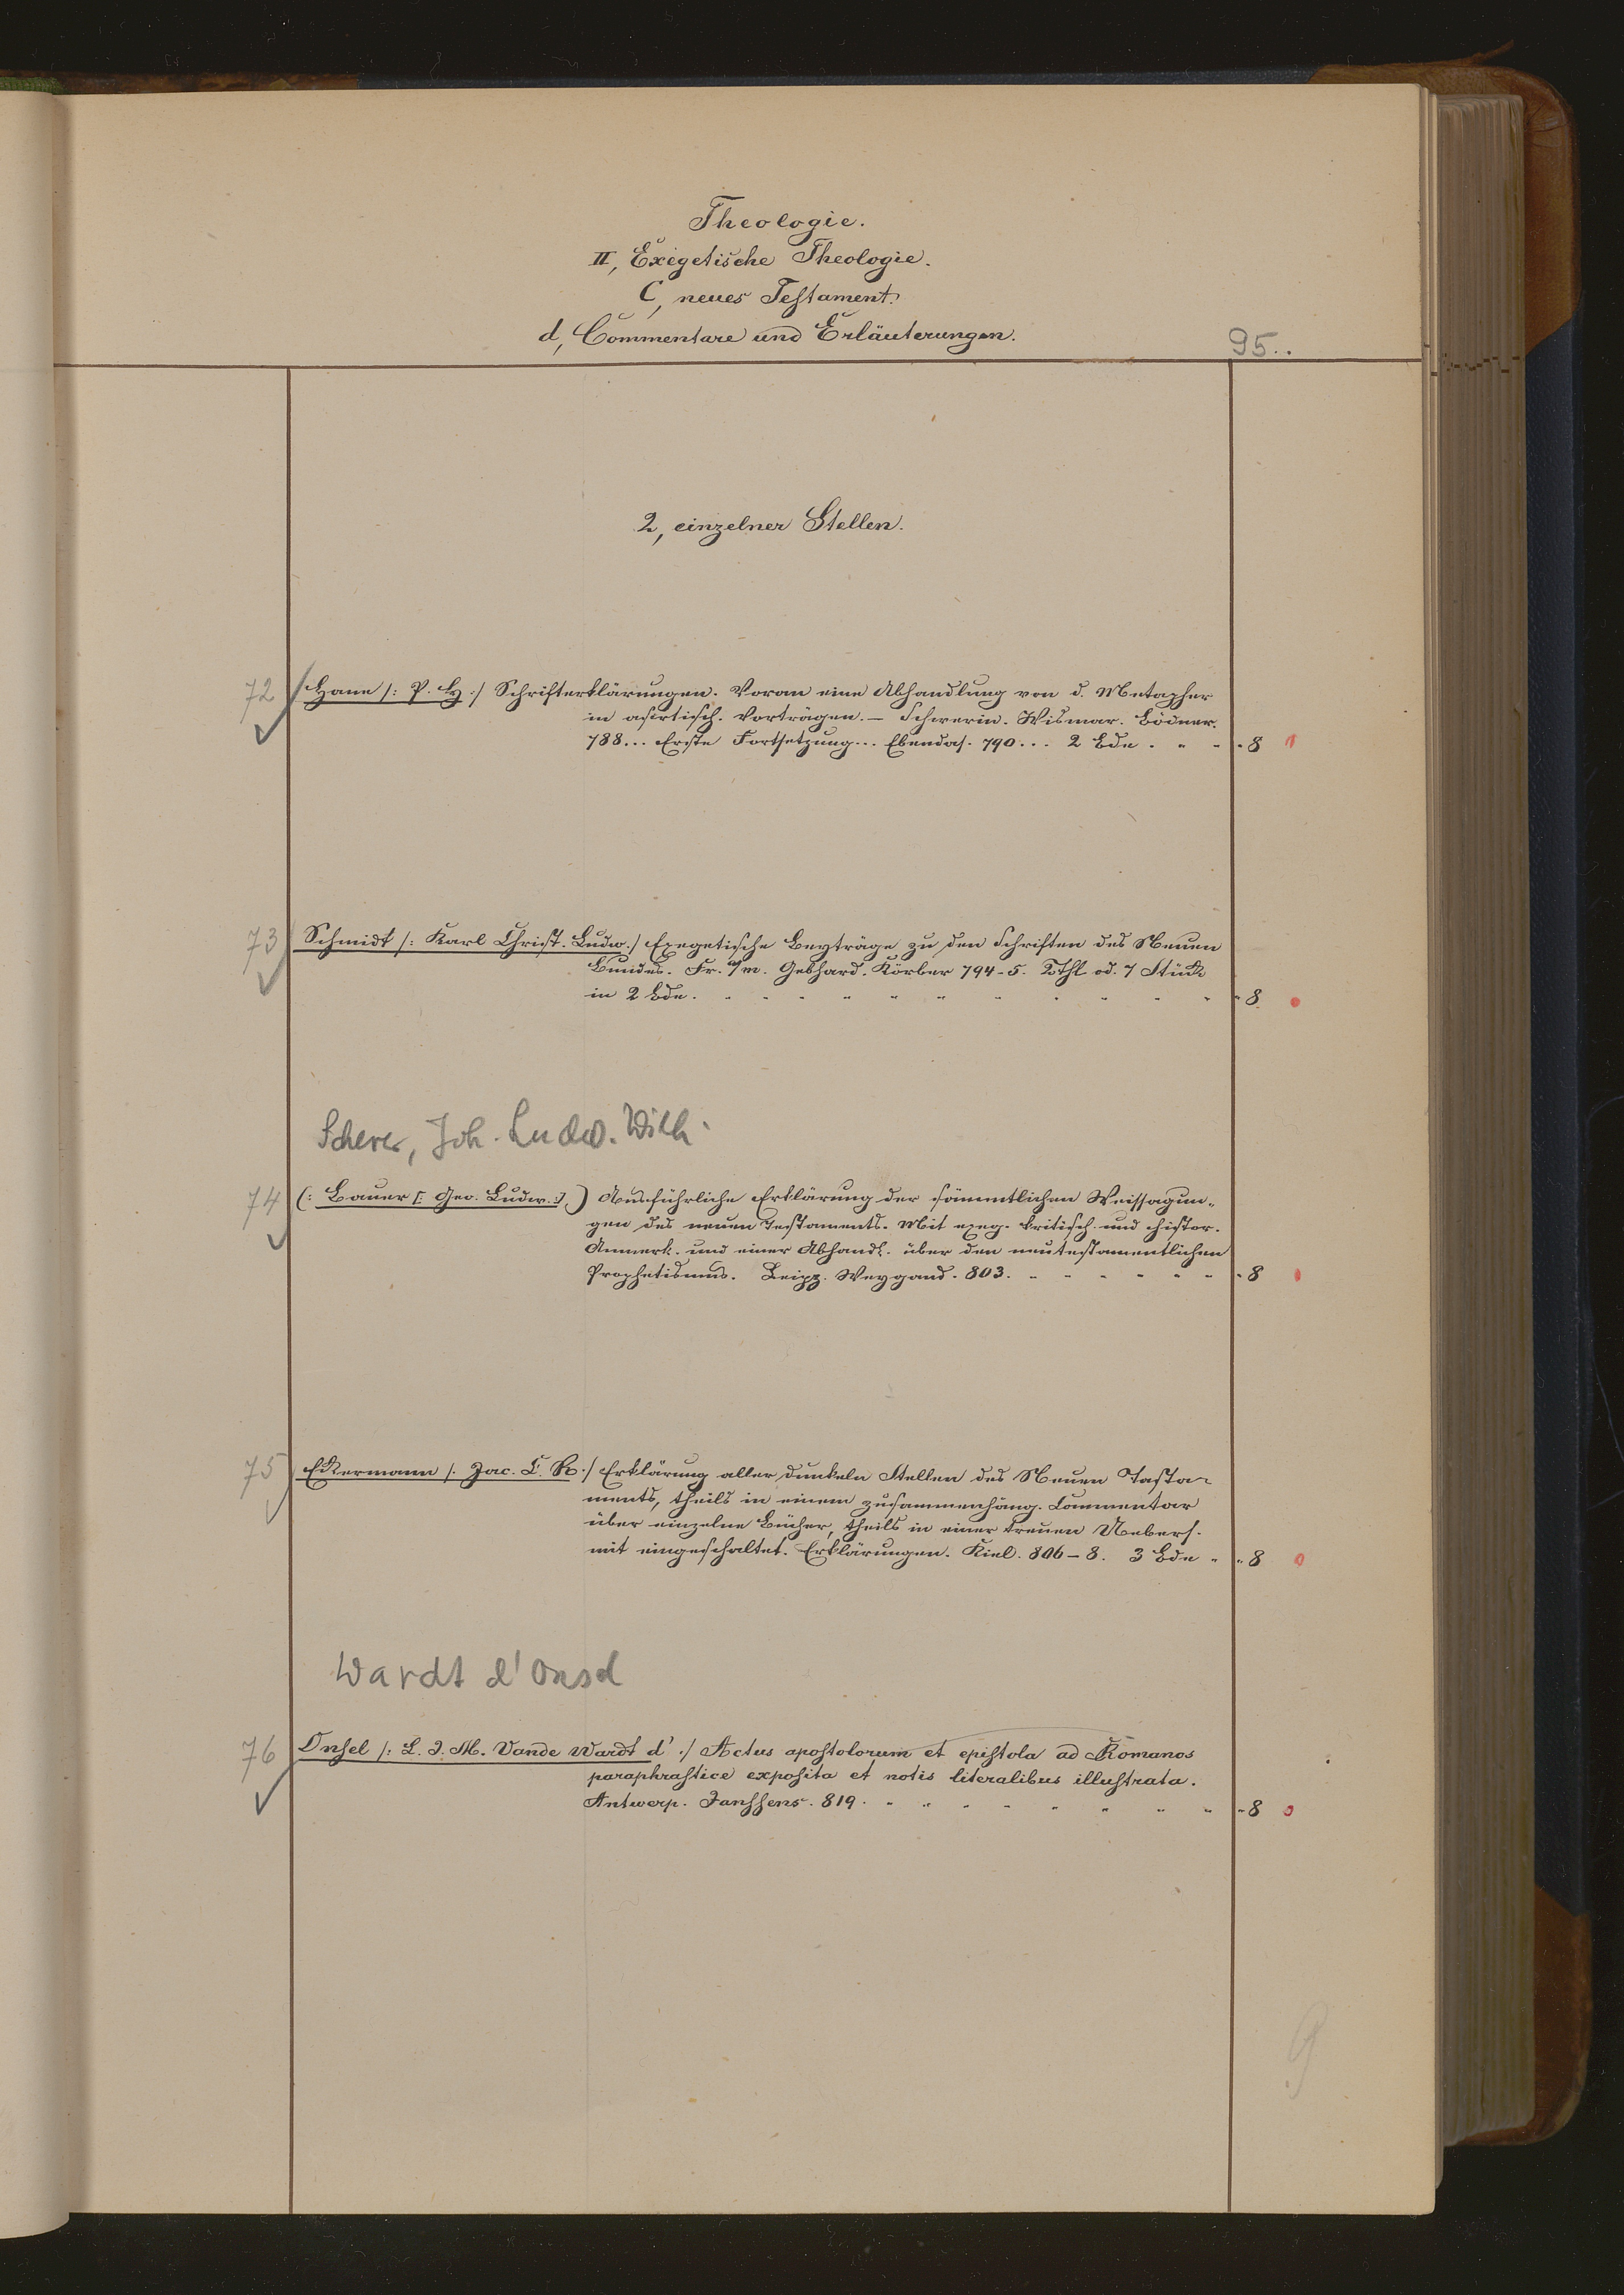 Theologie.
II, Exegetische Theologie.
C, neues Testament.
d, Commentare und Erläuterungen.
95.
2, einzelner Stellen.
72 Hane /: P. H :/ Schrifterklärungen. Voran eine Abhandlung von d. Metapher
in asiatisch. Vorträgen. – Schwerin. Wismar. Bödner.
788... Erste Fortsetzung... Ebendas. 790... 2 Bde. 8
73 Schmidt /: Karl Christ. Ludw. :/ Exegetische Beyträge zu den Schriften des Neuen
Bundes. Fr. a/m. Gebhard. Körber 794-5. 2 Thl od. 7 Stück
in 2 Bde. 8
Scherer, Joh. Ludw. Wilh.
74 (: Bauer [: Geo. Ludw. :] ) Ausführliche Erklärung der sämmtlichen Weissagun-
gen des neuen Testaments. Mit exeg. kritisch. und histor.
Anmerk. und einer Abhandl. über den neutestamentlichen
Prophetismus. Leipz. Weygand. 803. 8
75 Eckermann /: Jac. C. R. :/ Erklärung aller dunkeln Stellen des Neuen Testa-
ments, theils in einem zusammenhäng. Commentar
über einzelne Bücher, theils in einer treuen Uebers.
mit eingeschaltet. Erklärungen. Kiel. 806-8. 3 Bde 8
Wardt d'Onsel
76 Onsel /: L. J. M. Vande Wardt d' :/ Actus apostolorum et epistola ad Romanos
paraphrastice exposita et notis literalibus illustrata.
Antwerp. Janssens. 819. 8